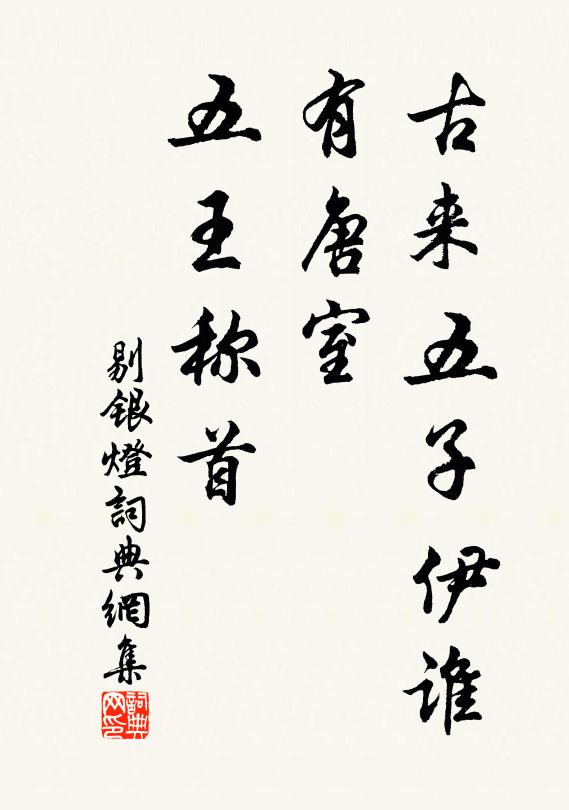 古来五子伊谁
有唐室
五王称首
剔银燈詞典網集
詞典网印